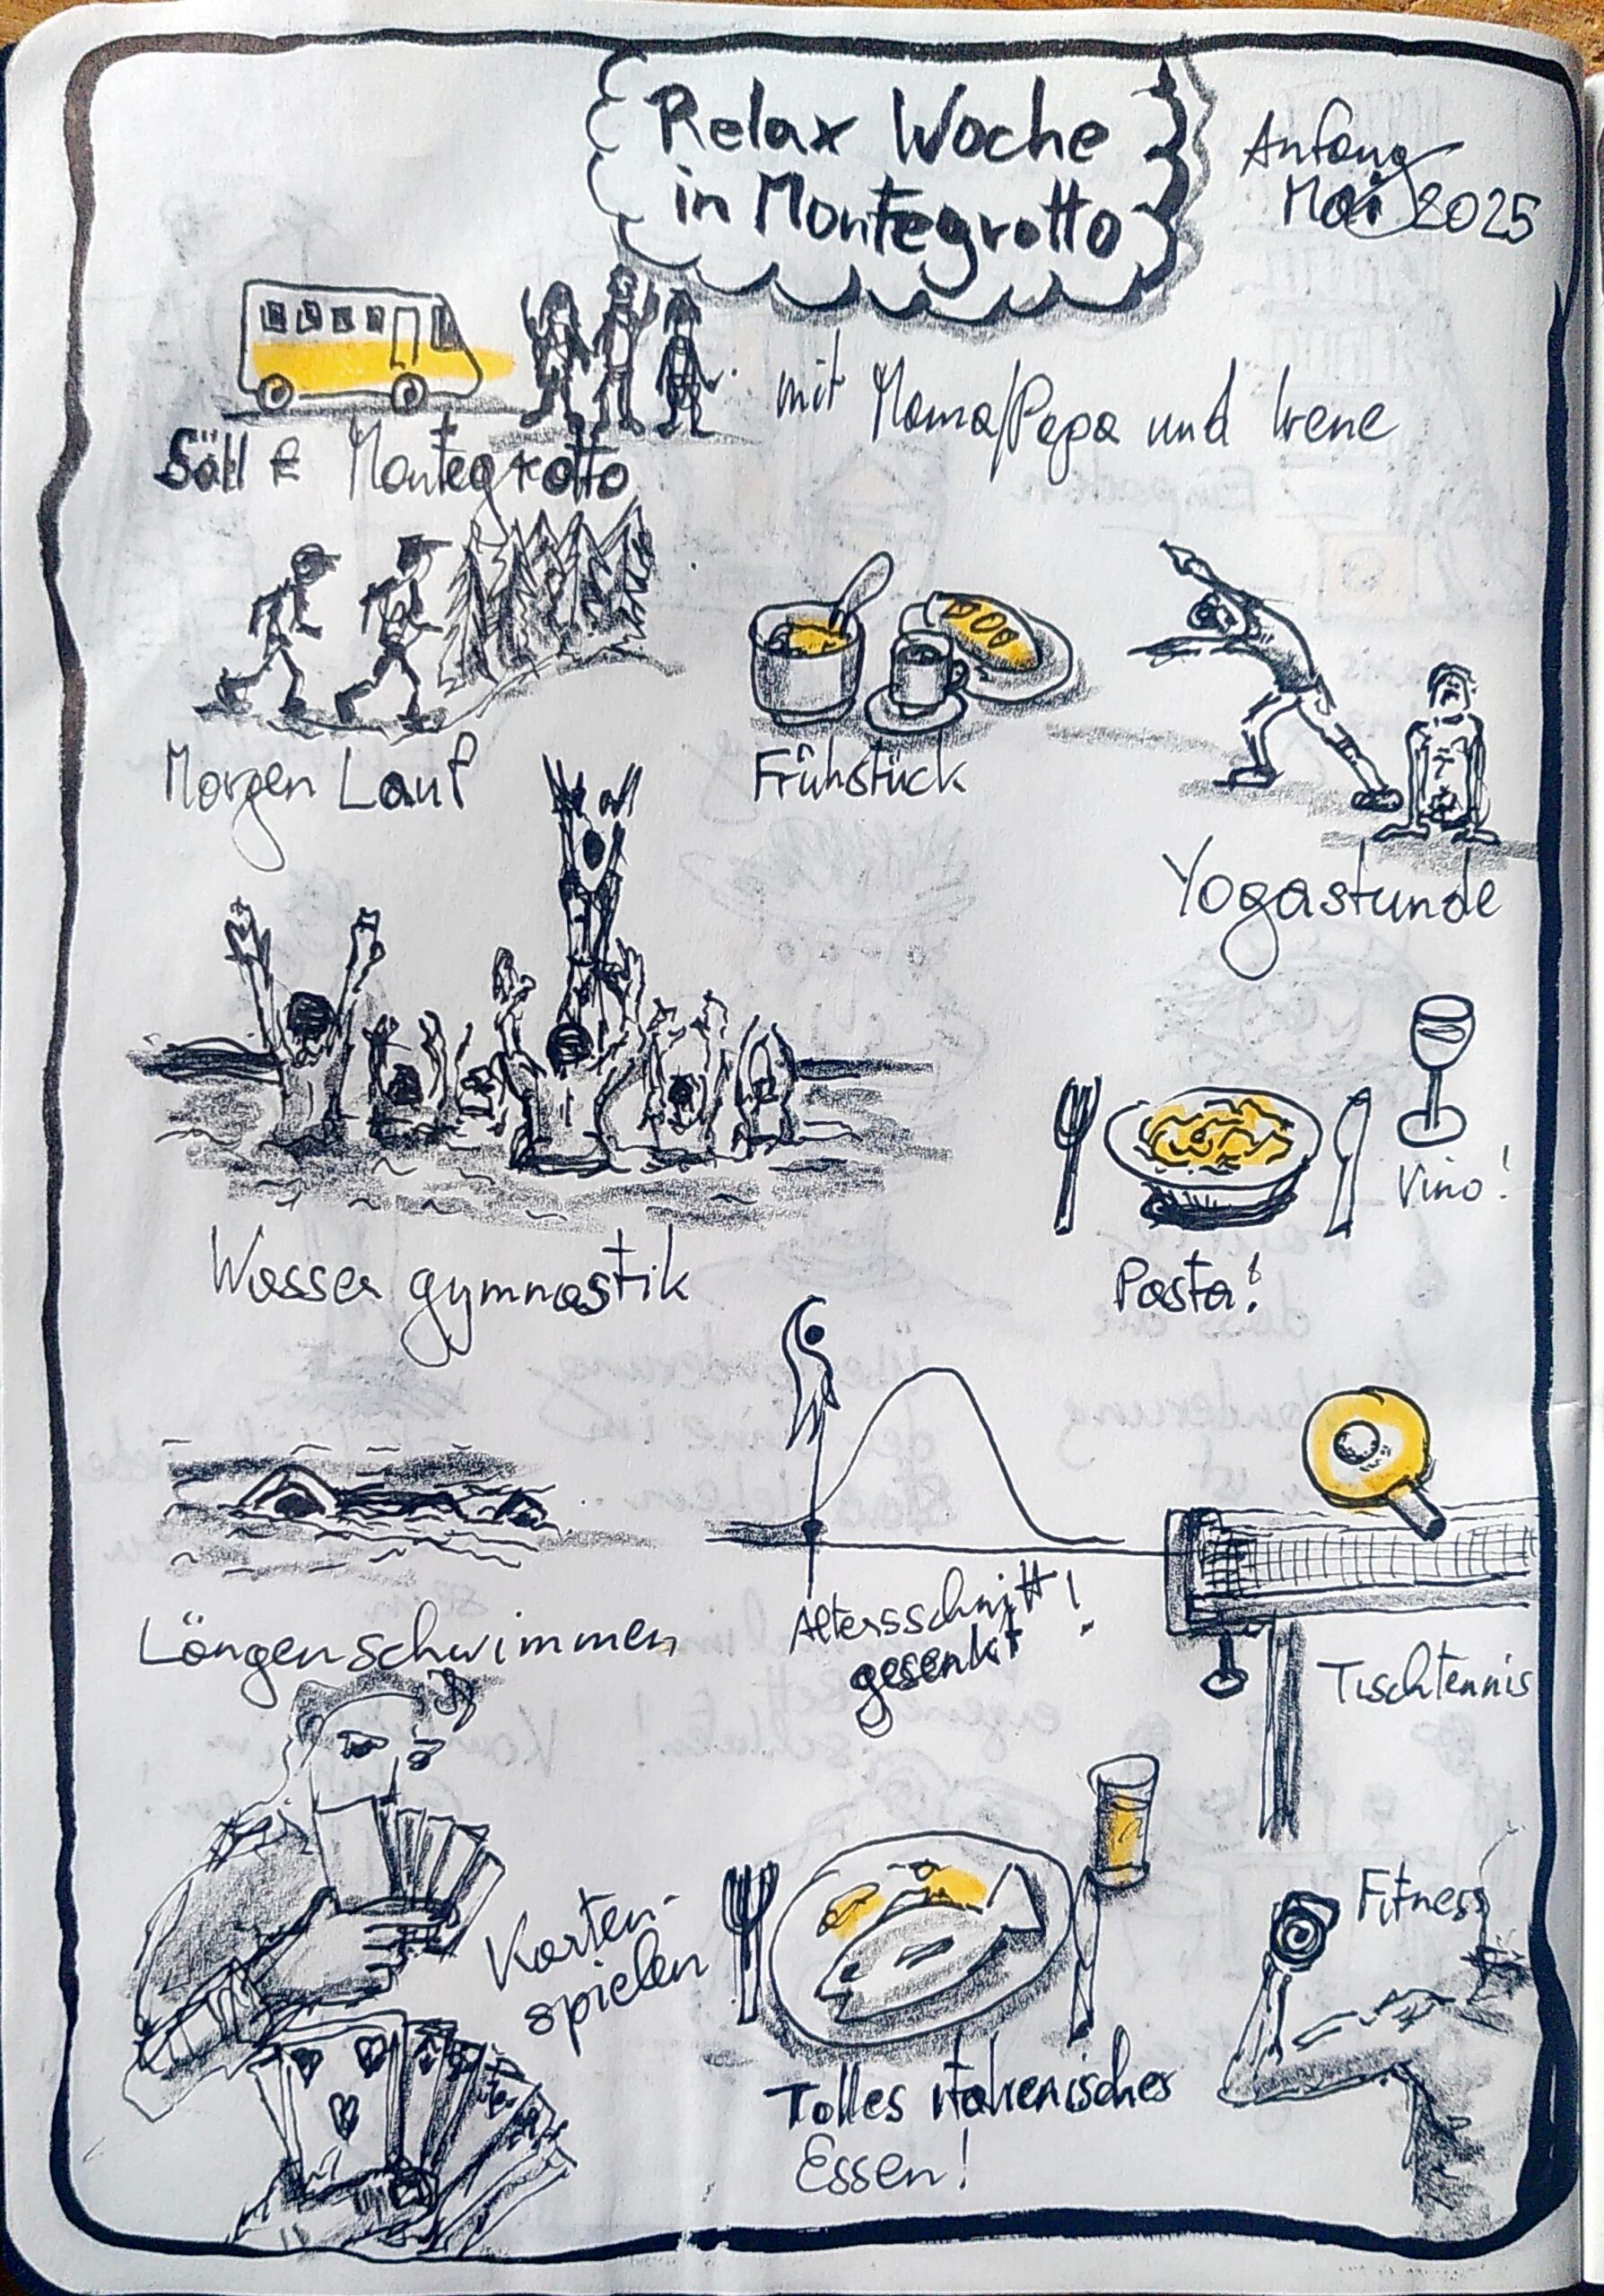 Relax Woche
in Montegrotto
Anfang
Mai 2025
Montegrotto
mit Mama/Papa und Irene
Morgen Lauf
Frühstück
Yogastunde
Wasser gymnastik
Pasta!
Vino!
Längenschwimmen
Altersschnitt!
gesenkt
Tischtennis
Karten-
spielen
Tolles italienisches
Essen!
Fitness